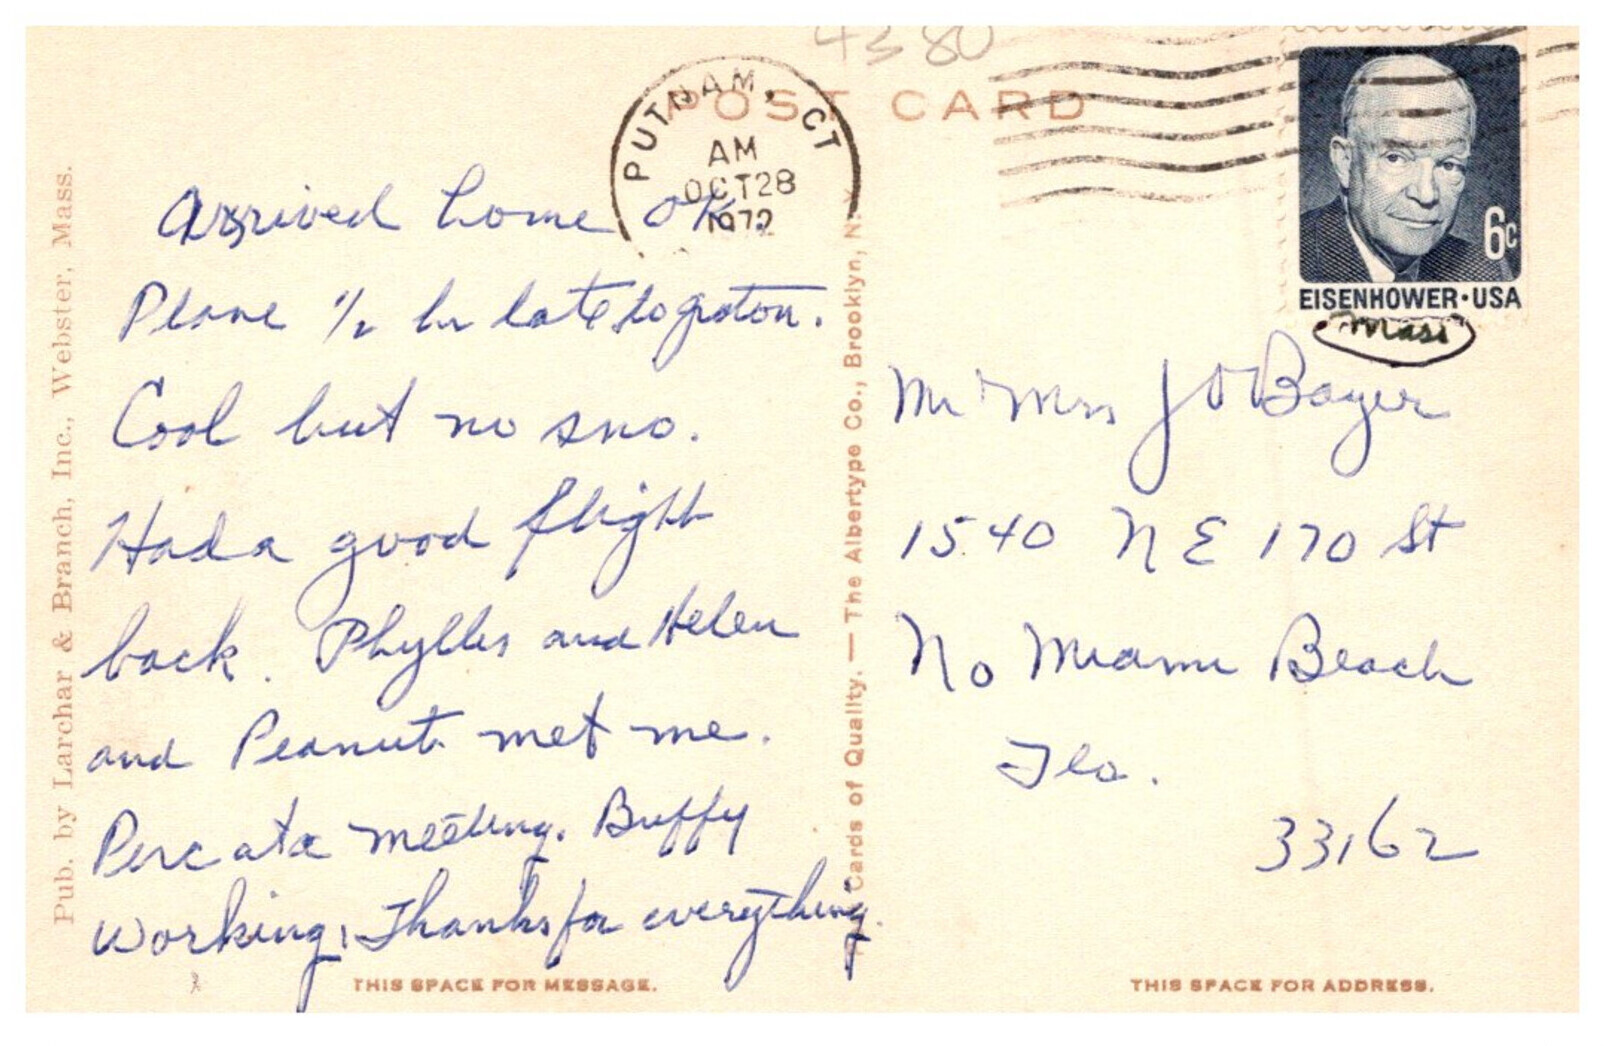 4380
POST CARD
PUTNAM, CT
AM
OCT 28
1972
6c
EISENHOWER·USA
Mass
Arrived home OK.
Plane ½ hr late to groton.
Cool but no sno.
Had a good flight
back. Phyllis and Helen
and Peanuts met me.
Perc at a meeting. Buffy
Working, Thanks for everything.
Mr Mrs J O Bayer
1540 N E 170 St
No Miami Beach
Fla.
33162
Pub. by Larchar & Branch, Inc., Webster, Mass.
Cards of Quality. — The Albertype Co., Brooklyn, N.Y.
THIS SPACE FOR MESSAGE.
THIS SPACE FOR ADDRESS.